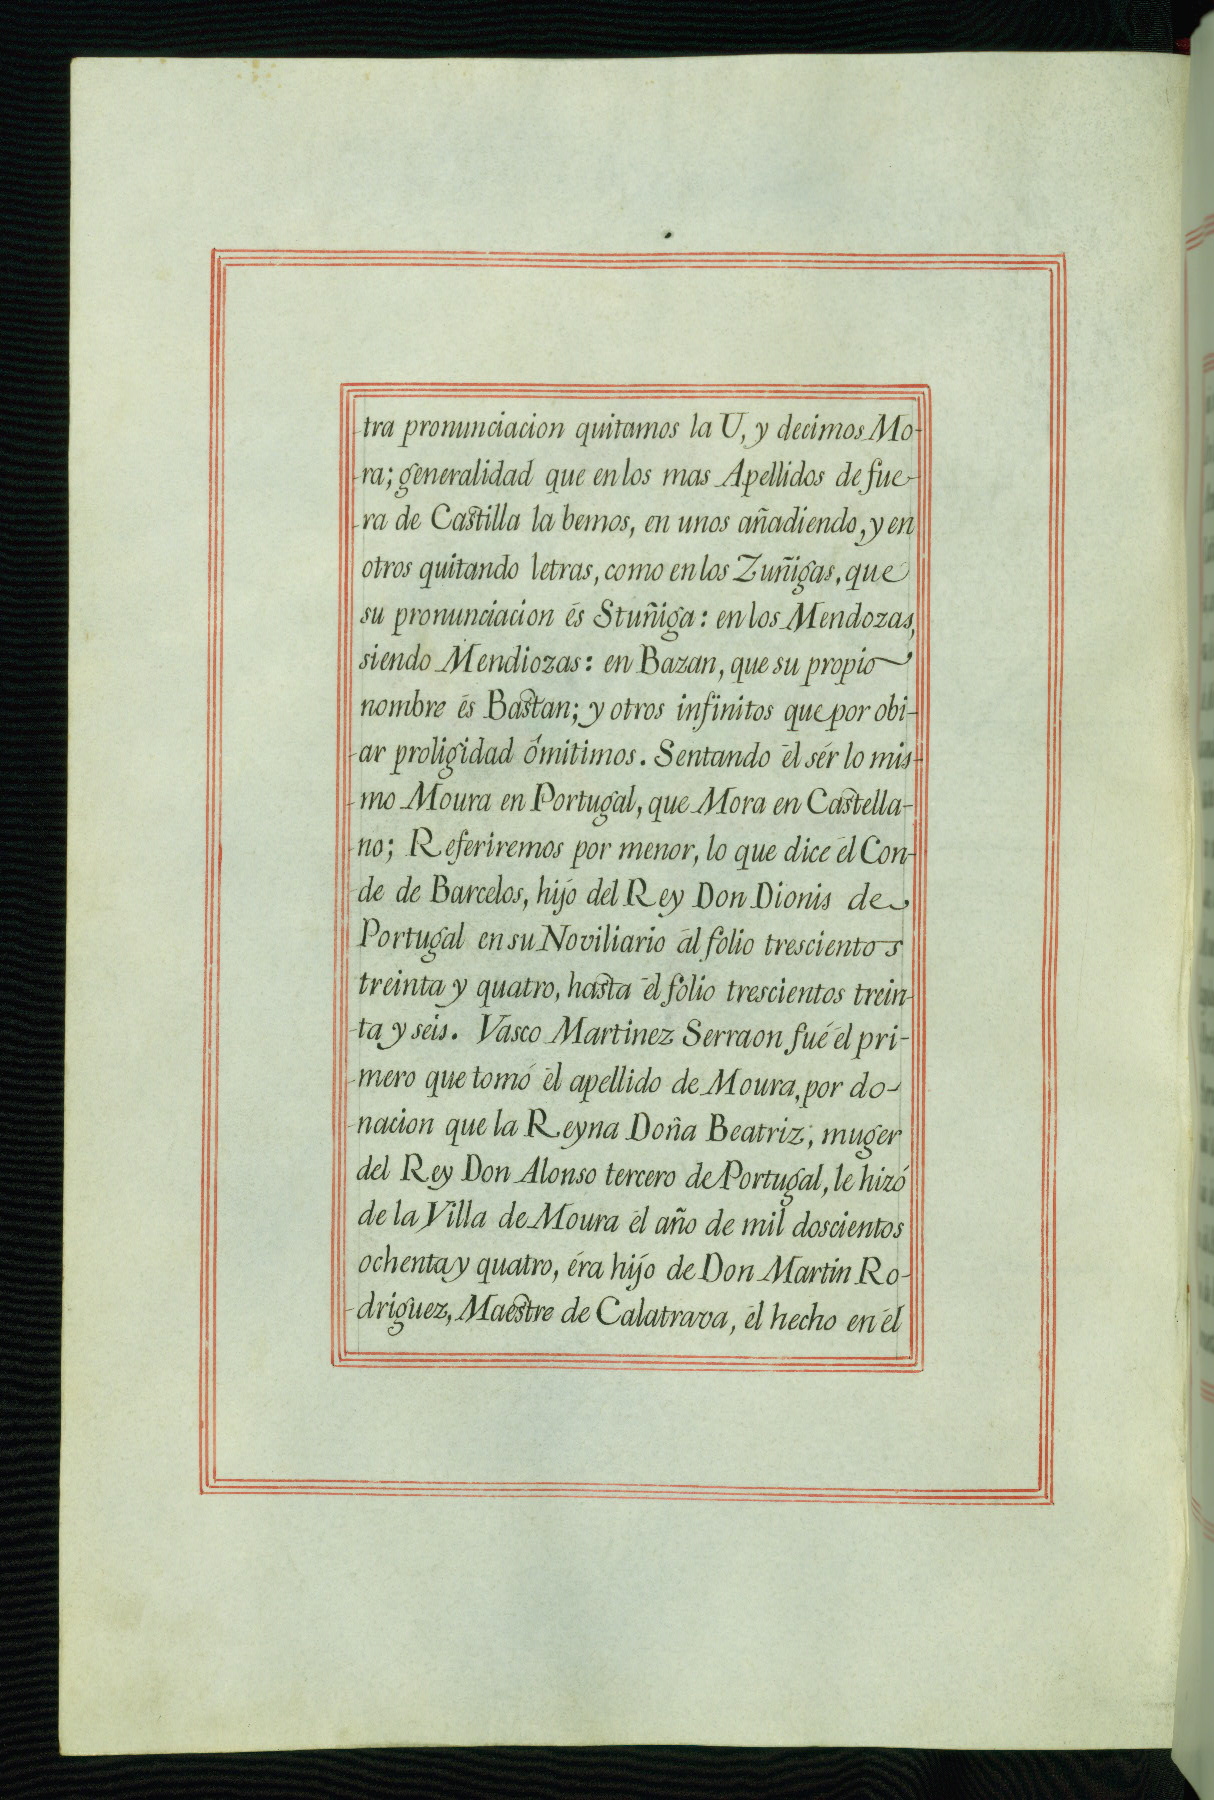 tra pronunciacion quitamos la U, y decimos Mo-
ra; generalidad que en los mas Apellidos de fue-
ra de Castilla la bemos, en unos añadiendo, y en
otros quitando letras, como en los Zuñigas, que
su pronunciacion és Stuñiga: en los Mendozas,
siendo Mendiozas: en Bazan, que su propio
nombre és Bastan; y otros infinitos que por obi-
ar proligidad ómitimos. Sentando él sér lo mis-
mo Moura en Portugal, que Mora en Castella-
no; Referiremos por menor, lo que dice él Con-
de de Barcelos, hijo del Rey Don Dionis de
Portugal en su Noviliario ál folio trescientos
treinta y quatro, hasta él folio trescientos trein-
ta y seis. Vasco Martinez Serraon fué él pri-
mero que tomó él apellido de Moura, por do-
nacion que la Reyna Doña Beatriz, muger
del Rey Don Alonso tercero de Portugal, le hizó
de la Villa de Moura él año de mil doscientos
ochenta y quatro, éra hijo de Don Martin Ro-
driguez, Maestre de Calatrava, él hecho en él